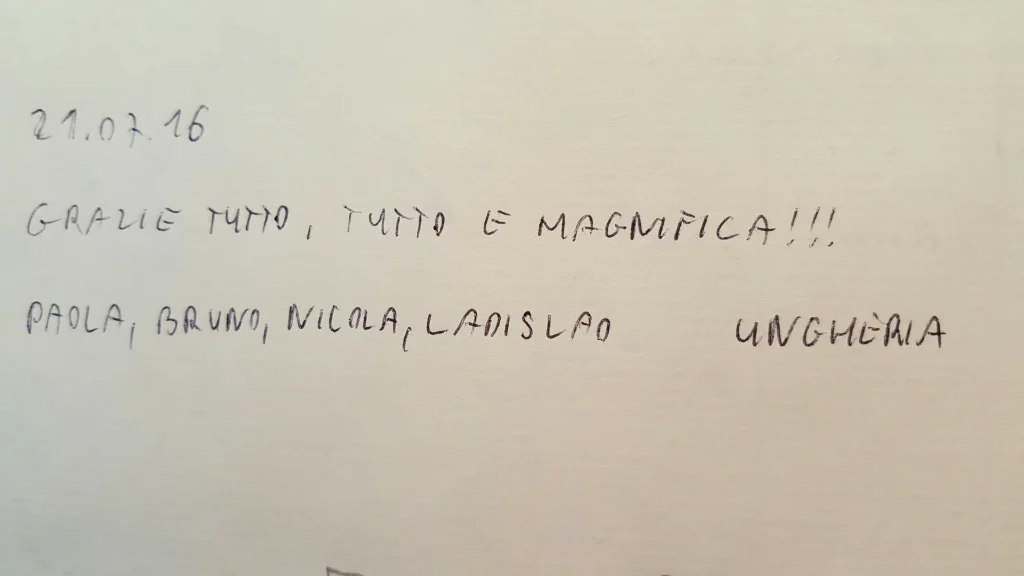 21.07.16
GRAZIE TUTTO, TUTTO E MAGNIFICA!!!
PAOLA, BRUNO, NICOLA, LADISLAO UNGHERIA